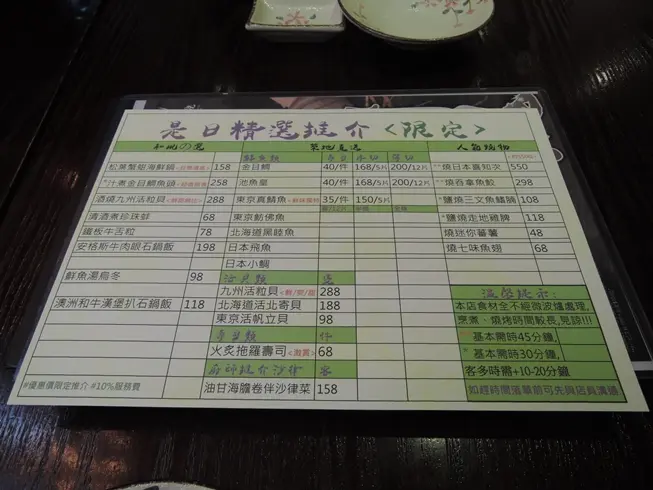 是日精選推介<限定>
和地の湯
築地直送
人氣燒物
松葉蟹鉗海鮮鍋 158
*汁煮金目鯛魚頭 258
酒燒九州活粒貝 288
清酒煮珍珠蚌 68
鐵板牛舌粒 78
安格斯牛肉眼石鍋飯 198
鮮魚湯烏冬 98
澳洲和牛漢堡扒石鍋飯 118
#優惠價限定推介 #10%服務費
金目鯛 40/件 168/5片 200/12片
池魚皇 40/件 168/5片 200/12片
東京真鯛魚 35/件 150/5片
東京魴佛魚
北海道黑睦魚
日本飛魚
日本小鯛
活貝類
九州活粒貝 288
北海道活北寄貝 188
東京活帆立貝 98
壽司類 件
火炙拖羅壽司 68
廚師推介沙律 客
油甘海膽卷伴沙律菜 158
**燒日本喜知次 550
*燒吞拿魚鮫 298
*鹽燒三文魚鱔腩 108
*鹽燒走地雞脾 118
燒迷你蕃薯 48
燒七味魚翅 68
溫馨提示:
本店食材全不經微波爐處理,
烹煮、燒烤時間較長,見諒!!!
* 基本需時45分鐘,
* 基本需時30分鐘,
客多時需+10-20分鐘
如趕時間落單前可先與店員溝通